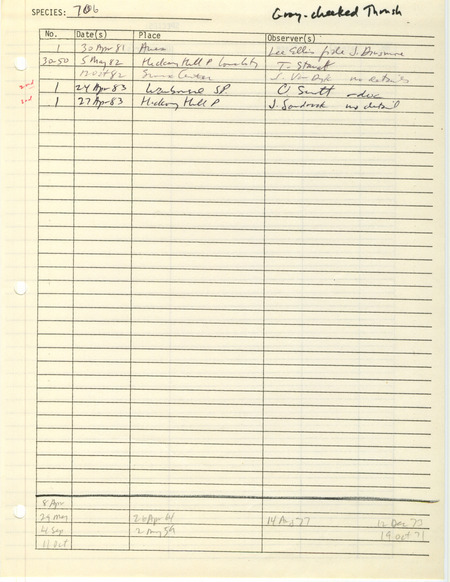 SPECIES: 706 Gray-cheeked Thrush
No. Date(s) Place Observer(s)
1 30 Apr 81 Ames Lee Ellis fide J. Dinsmore
30-50 5 May 82 Hickory Hill P T. Staudt
12 Oct 82 J. Van Dyk no details
2nd 1 24 Apr 83 SP no doc
3rd 1 27 Apr 83 Hickory Hill P J. Sandrock no detail
8 Apr
29 May 26 Apr 64 14 Aug 77 12 Dec 77
4 Sep 2 May 59 19 Oct 71
11 Oct